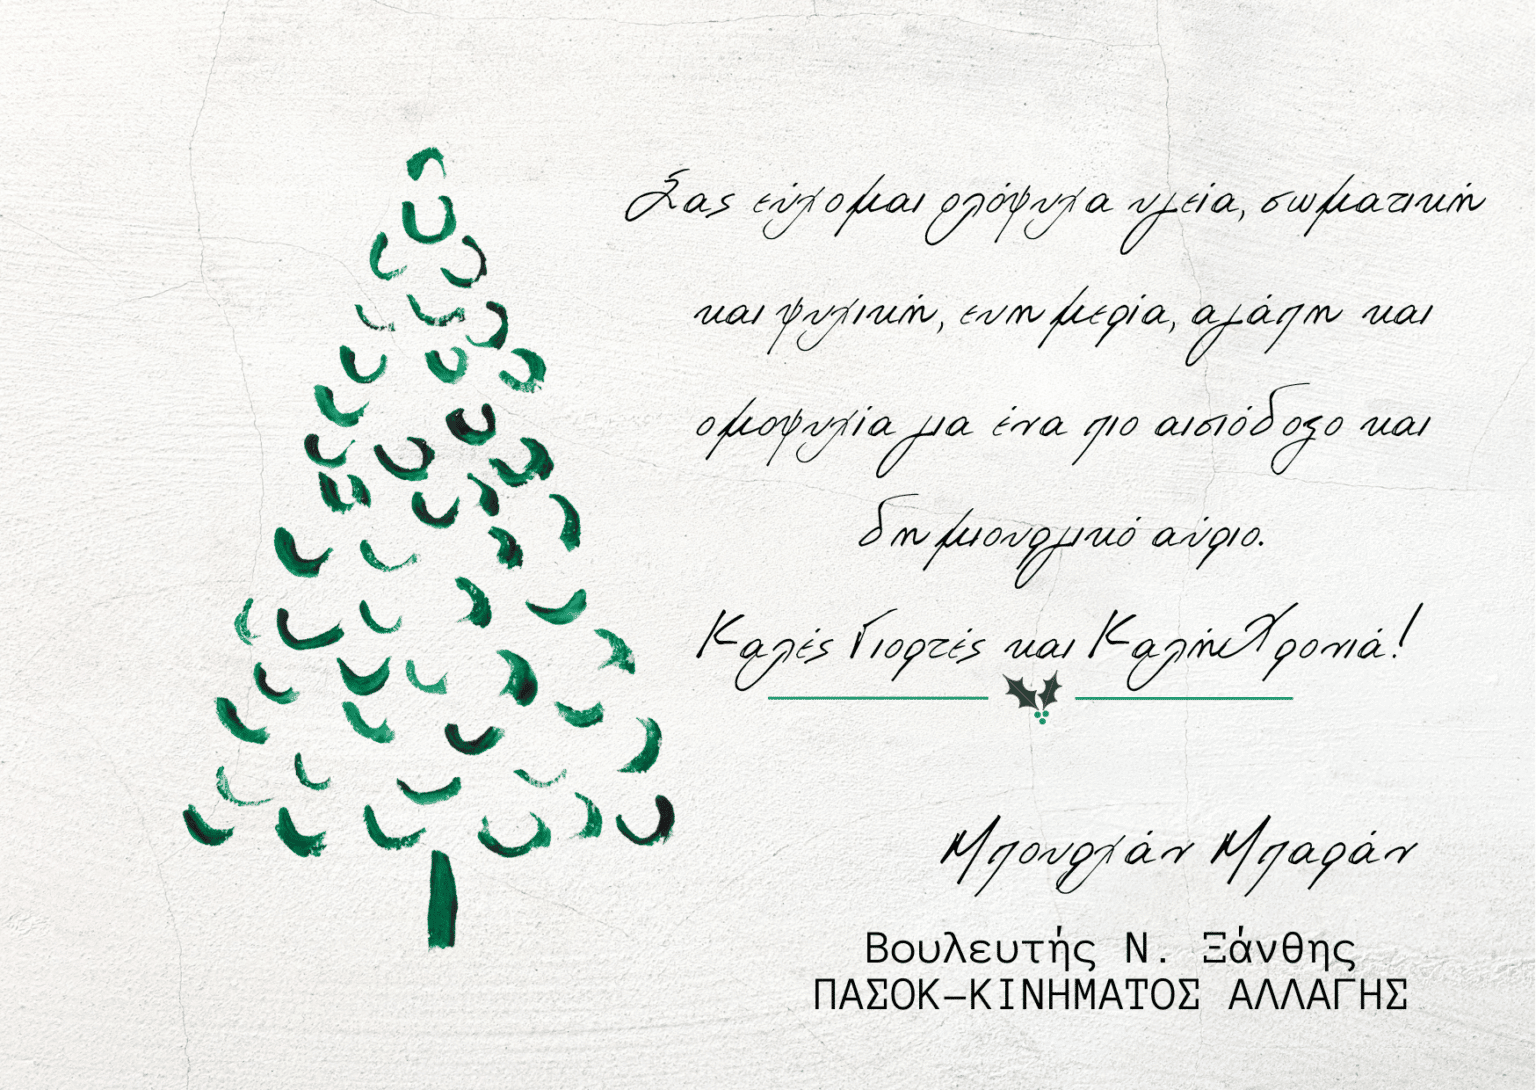 Σας εύχομαι ολόψυχα υγεία, σωματική
και ψυχική, ευημερία, αγάπη και
ομοψυχία για ένα πιο αισιόδοξο και
δημιουργικό αύριο.
Καλές Γιορτές και Καλή Χρονιά!
Μπουρχάν Μπαράν
Βουλευτής Ν. Ξάνθης
ΠΑΣΟΚ–ΚΙΝΗΜΑΤΟΣ ΑΛΛΑΓΗΣ